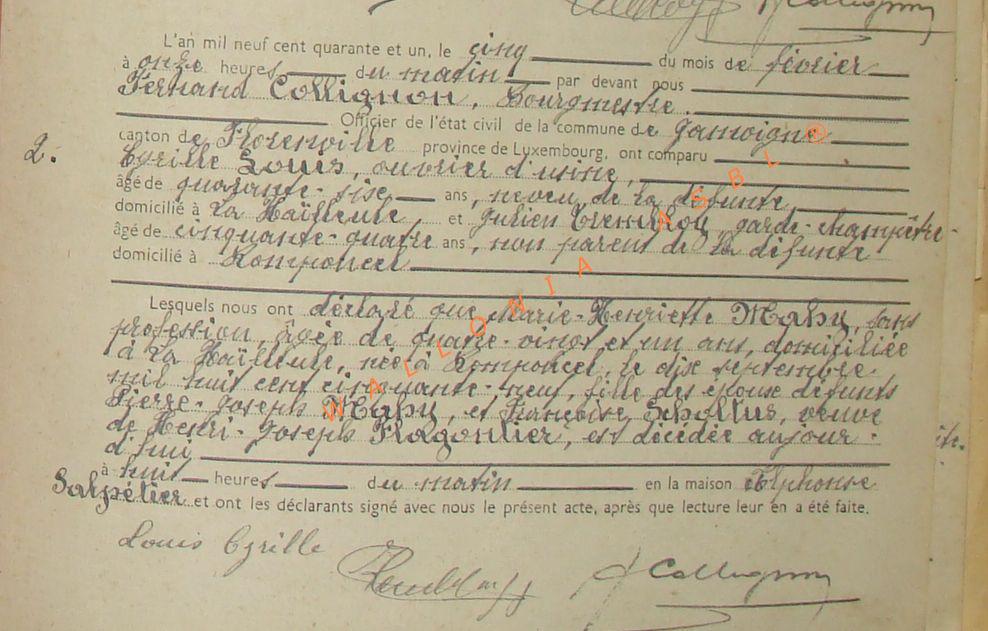 L'an mil neuf cent quarante et un, le cinq du mois de février
à onze heures du matin par devant nous
Fernand Collignon, Bourgmestre
Officier de l'état civil de la commune de Jamoigne
canton de Florenville province de Luxembourg, ont comparu
2. Cyrille Louis, ouvrier d'usine,
âgé de quarante-six ans, neveu de la défunte
domicilié à La Haïlleule, et Julien garde-champêtre
âgé de cinquante-quatre ans, non parent de la défunte
domicilié à Romponcel
Lesquels nous ont déclaré que Marie-Henriette Mahy, sans
profession, âgée de quatre-vingt et un ans, domiciliée
à La Haïlleule, née à Romponcel, le dix septembre
mil huit cent cinquante-neuf, fille des époux défunts
Pierre-Joseph Mahy, et Françoise, Schollus, veuve
de Henri-Joseph Flagontier, est décédée aujour-
d'hui
à huit heures du matin en la maison Alphonse
Salpétier et ont les déclarants signé avec nous le présent acte, après que lecture leur en a été faite.
Louis Cyrille
Collignon
WALLONIA ASBL